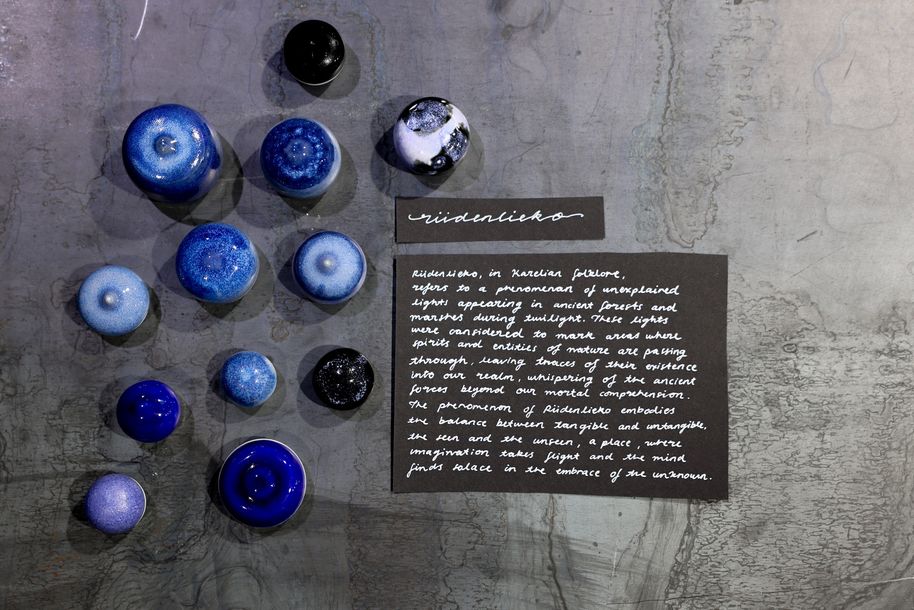 riidenlieko
Riidenlieko, in Karelian folklore,
refers to a phenomenon of unexplained
lights appearing in ancient forests and
marshes during twilight. These lights
were considered to mark areas where
spirits and entities of nature are passing
through, leaving traces of their existence
into our realm, whispering of the ancient
forces beyond our mortal comprehension.
The phenomenon of Riidenlieko embodies
the balance between tangible and untangible,
the seen and the unseen, a place, where
imagination takes flight and the mind
finds solace in the embrace of the unknown.